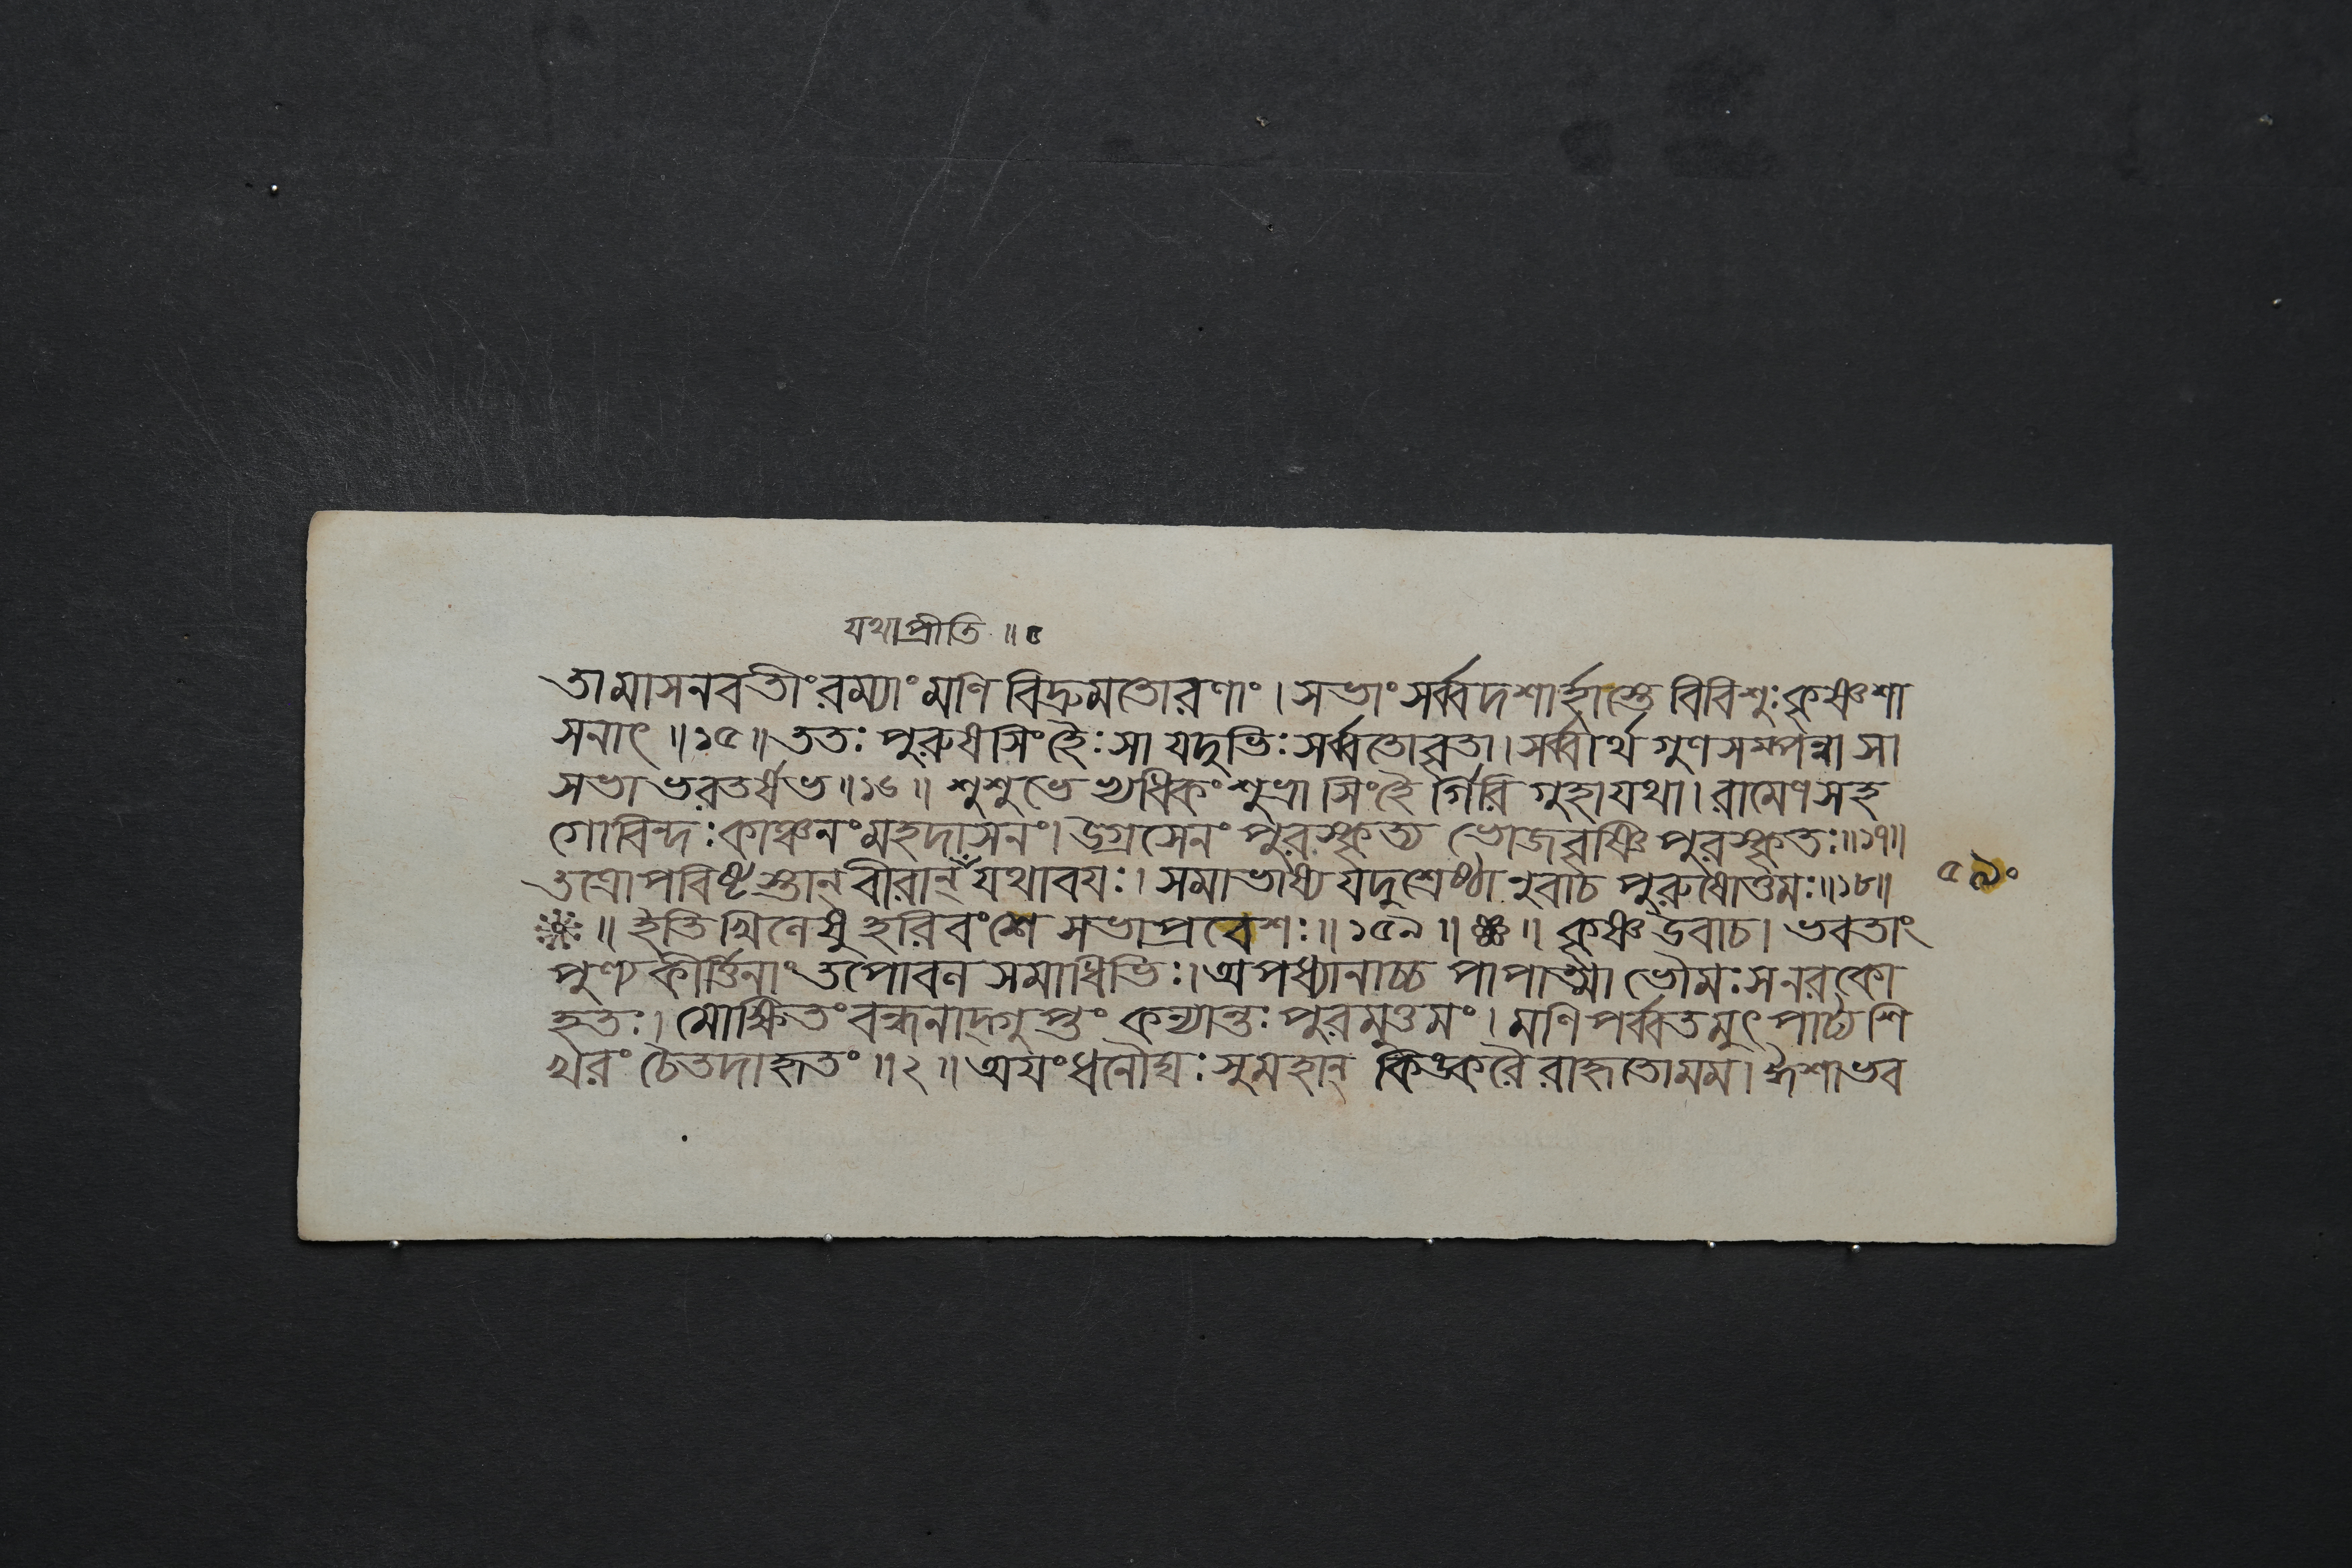 যথাপ্রীতি ॥ ৫
তামাসনবতীং রম্যাং মণি বিদ্রুমতোরণাং । সভাং সর্ব্বদশার্হাস্তে বিবিশুঃ কৃষ্ণশা
সনাৎ ॥ ১৫ ॥ ততঃ পুরুষসিংহৈঃ সা যদুভিঃ সর্ব্বতোবৃতা । সর্ব্বার্থ গুণ সম্পন্না সা
সভা ভরতর্ষভ ॥ ১৬ ॥ শুশুভে ধিকং শুভ্রা সিংহৈর্গিরি গুহা যথা । রামেণ সহ
গোবিন্দঃ কাঞ্চনং মহদাসনং । উগ্রসেনং পুরস্কৃত্য ভোজবৃষ্ণি পুরস্কৃতঃ ॥ ১৭ ॥
তত্রোপবিষ্টাস্তান্ বীরান্ যথাবযঃ । সমাভাষ্য যদুশ্রেষ্ঠানুবাচ পুরুষোত্তমঃ ॥ ১৮ ॥
৫৯০
॥ ইতি খিলেষু হরিবংশে সভাপ্রবেশঃ ॥ ১৫৯ ॥ ॥ কৃষ্ণ উবাচ । ভবতাং
পুণ্যকীর্ত্তিনাং তপোবন সমাধিভিঃ । অপধ্যানাচ্চ পাপাত্মা ভৌমঃ স নরকো
হতঃ । মোক্ষিতং বন্ধনাদ্গুপ্তং কন্যান্তঃ পুরমুত্তমং । মণি পর্ব্বতমুৎপাট্য শি
খরং চৈতদাহৃতং ॥ ২ ॥ অযং ধনৌঘঃ সুমহান্ কিঙ্করৈ রাহৃতো মম । ঈশা ভব